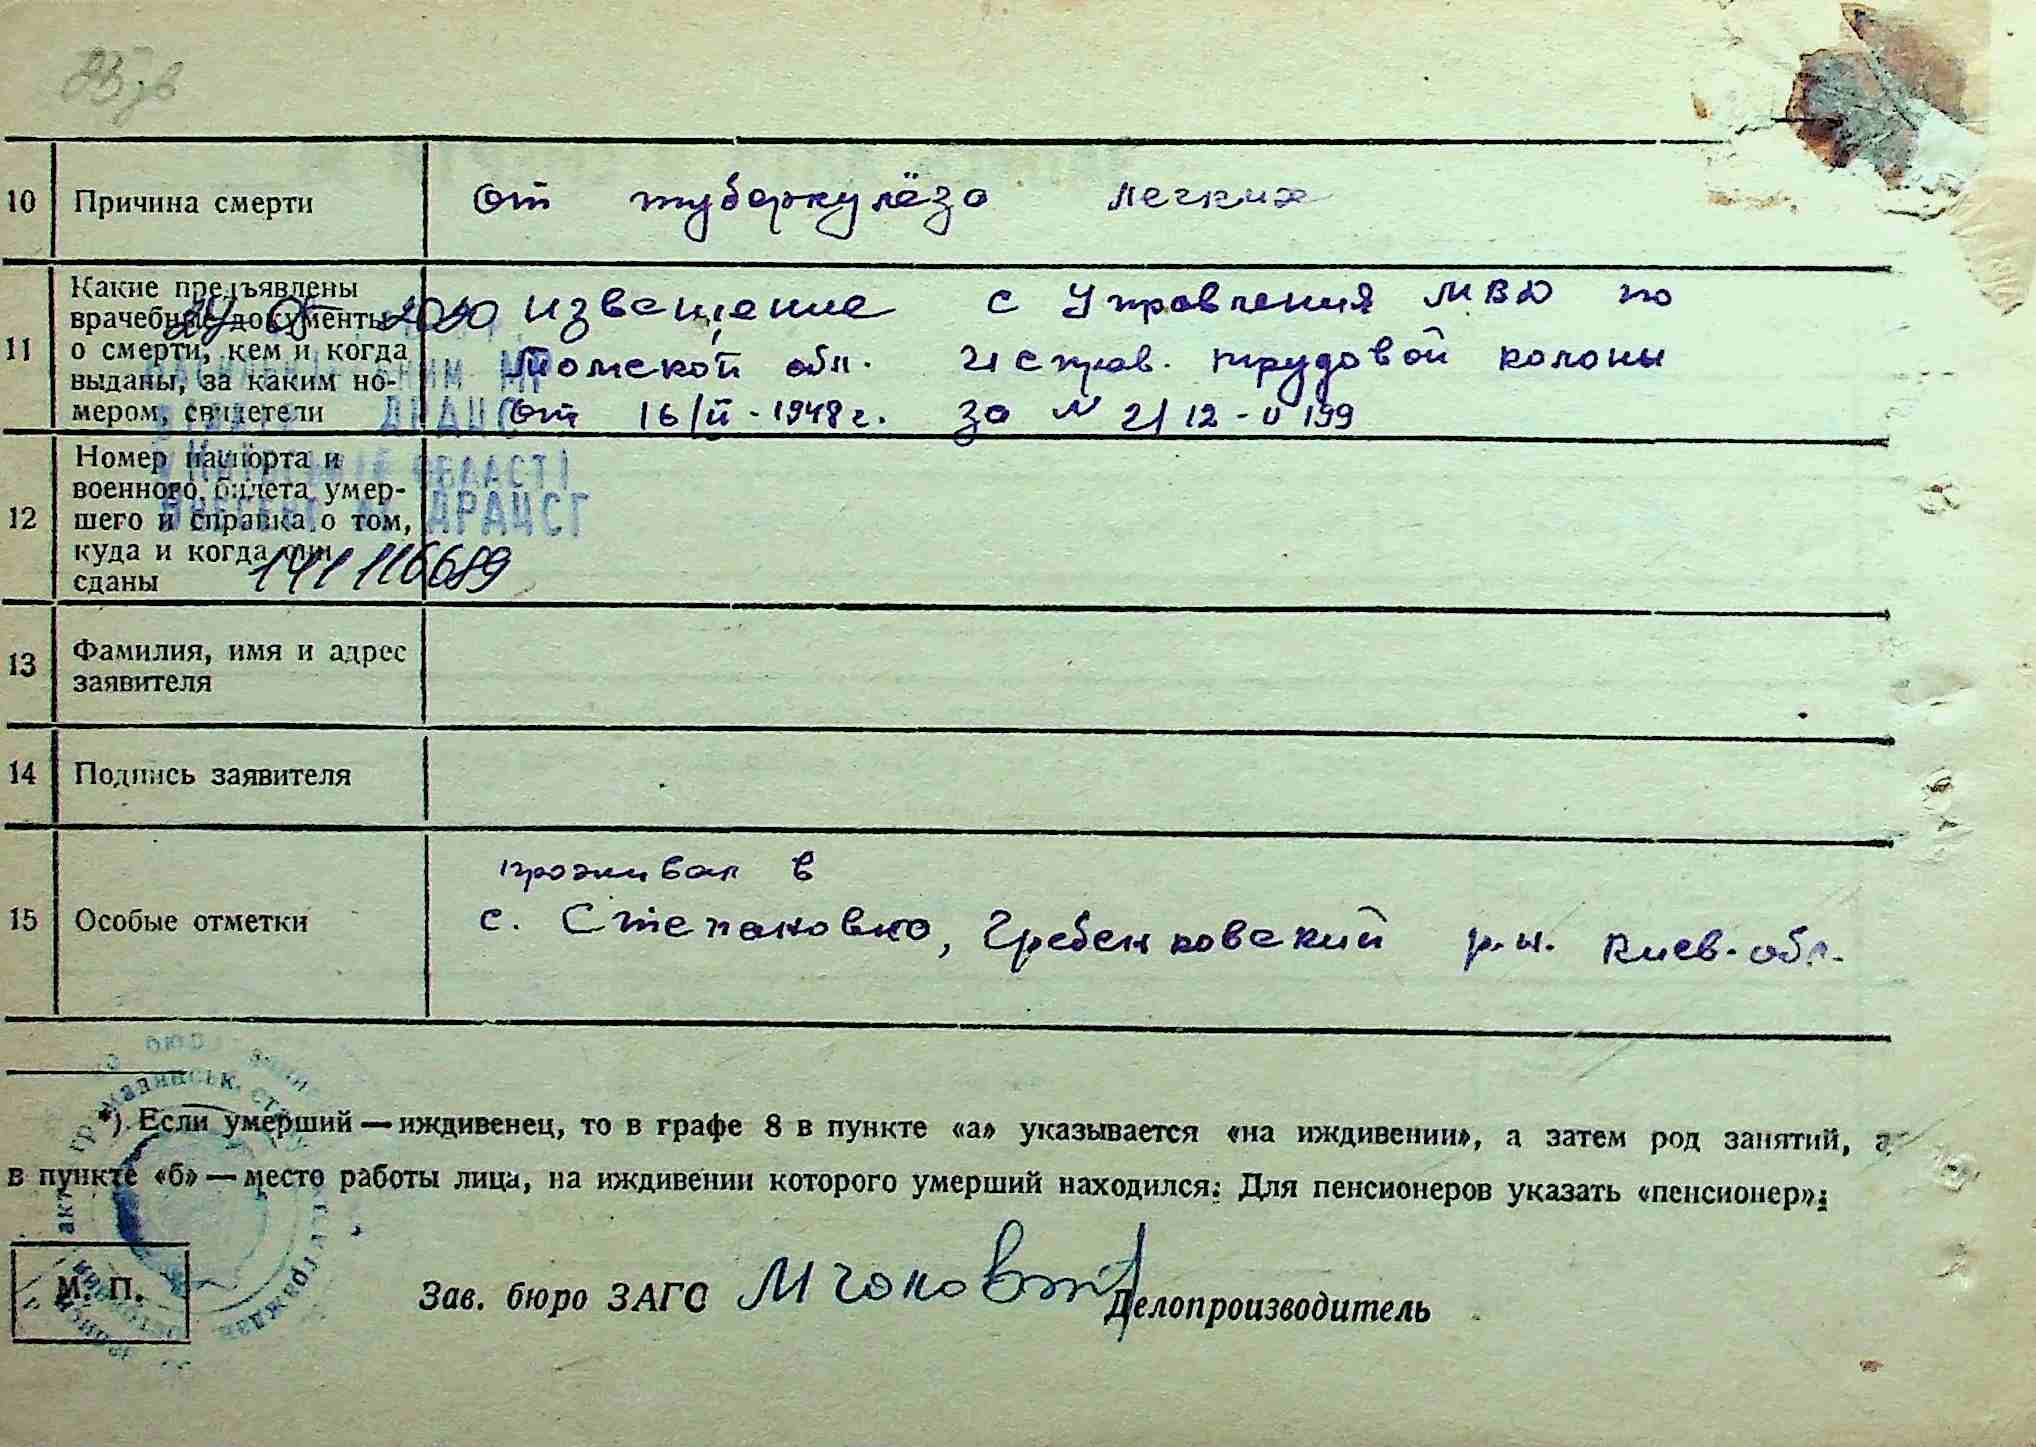 10 Причина смерти От туберкулёза легких
11 Какие предъявлены
врачебные документы
о смерти, кем и когда
выданы, за каким но-
мером, свидетели
извещение с Управления МВД по
Томской обл. Исправ. трудовой колоны
от 16/II-1948г. за N 2/12-
12 Номер паспорта и
военного билета умер-
шего и справка о том,
куда и когда они
сданы
ОБЛАСТІ
ДРАЦСГ
13 Фамилия, имя и адрес
заявителя
14 Подпись заявителя
15 Особые отметки
проживал в
с. Степановко, Гребенковский р.н. Киев-обл.
*) Если умерший — иждивенец, то в графе 8 в пункте «а» указывается «на иждивении», а затем род занятий, а
в пункте «б» — место работы лица, на иждивении которого умерший находился. Для пенсионеров указать «пенсионер».
М. П.
Зав. бюро ЗАГС Делопроизводитель